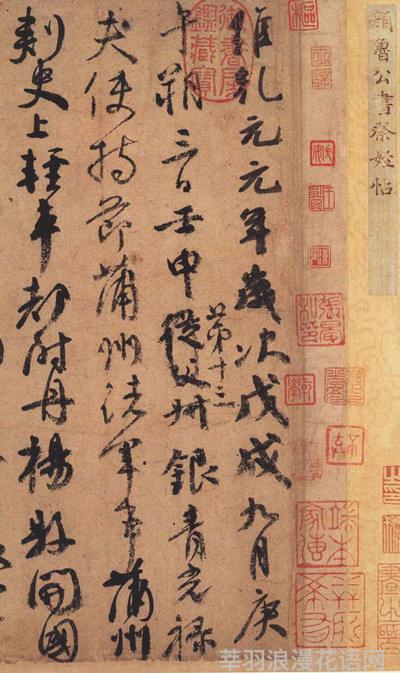 顏魯公書祭姪帖
維乾元元年歲次戊戌九月庚
午朔三日壬申第十三從父叔銀青光祿
夫使持節蒲州諸軍事蒲州
刺史上輕車都尉丹楊縣開國
御書房鑑藏寶
莘羽浪漫花语网